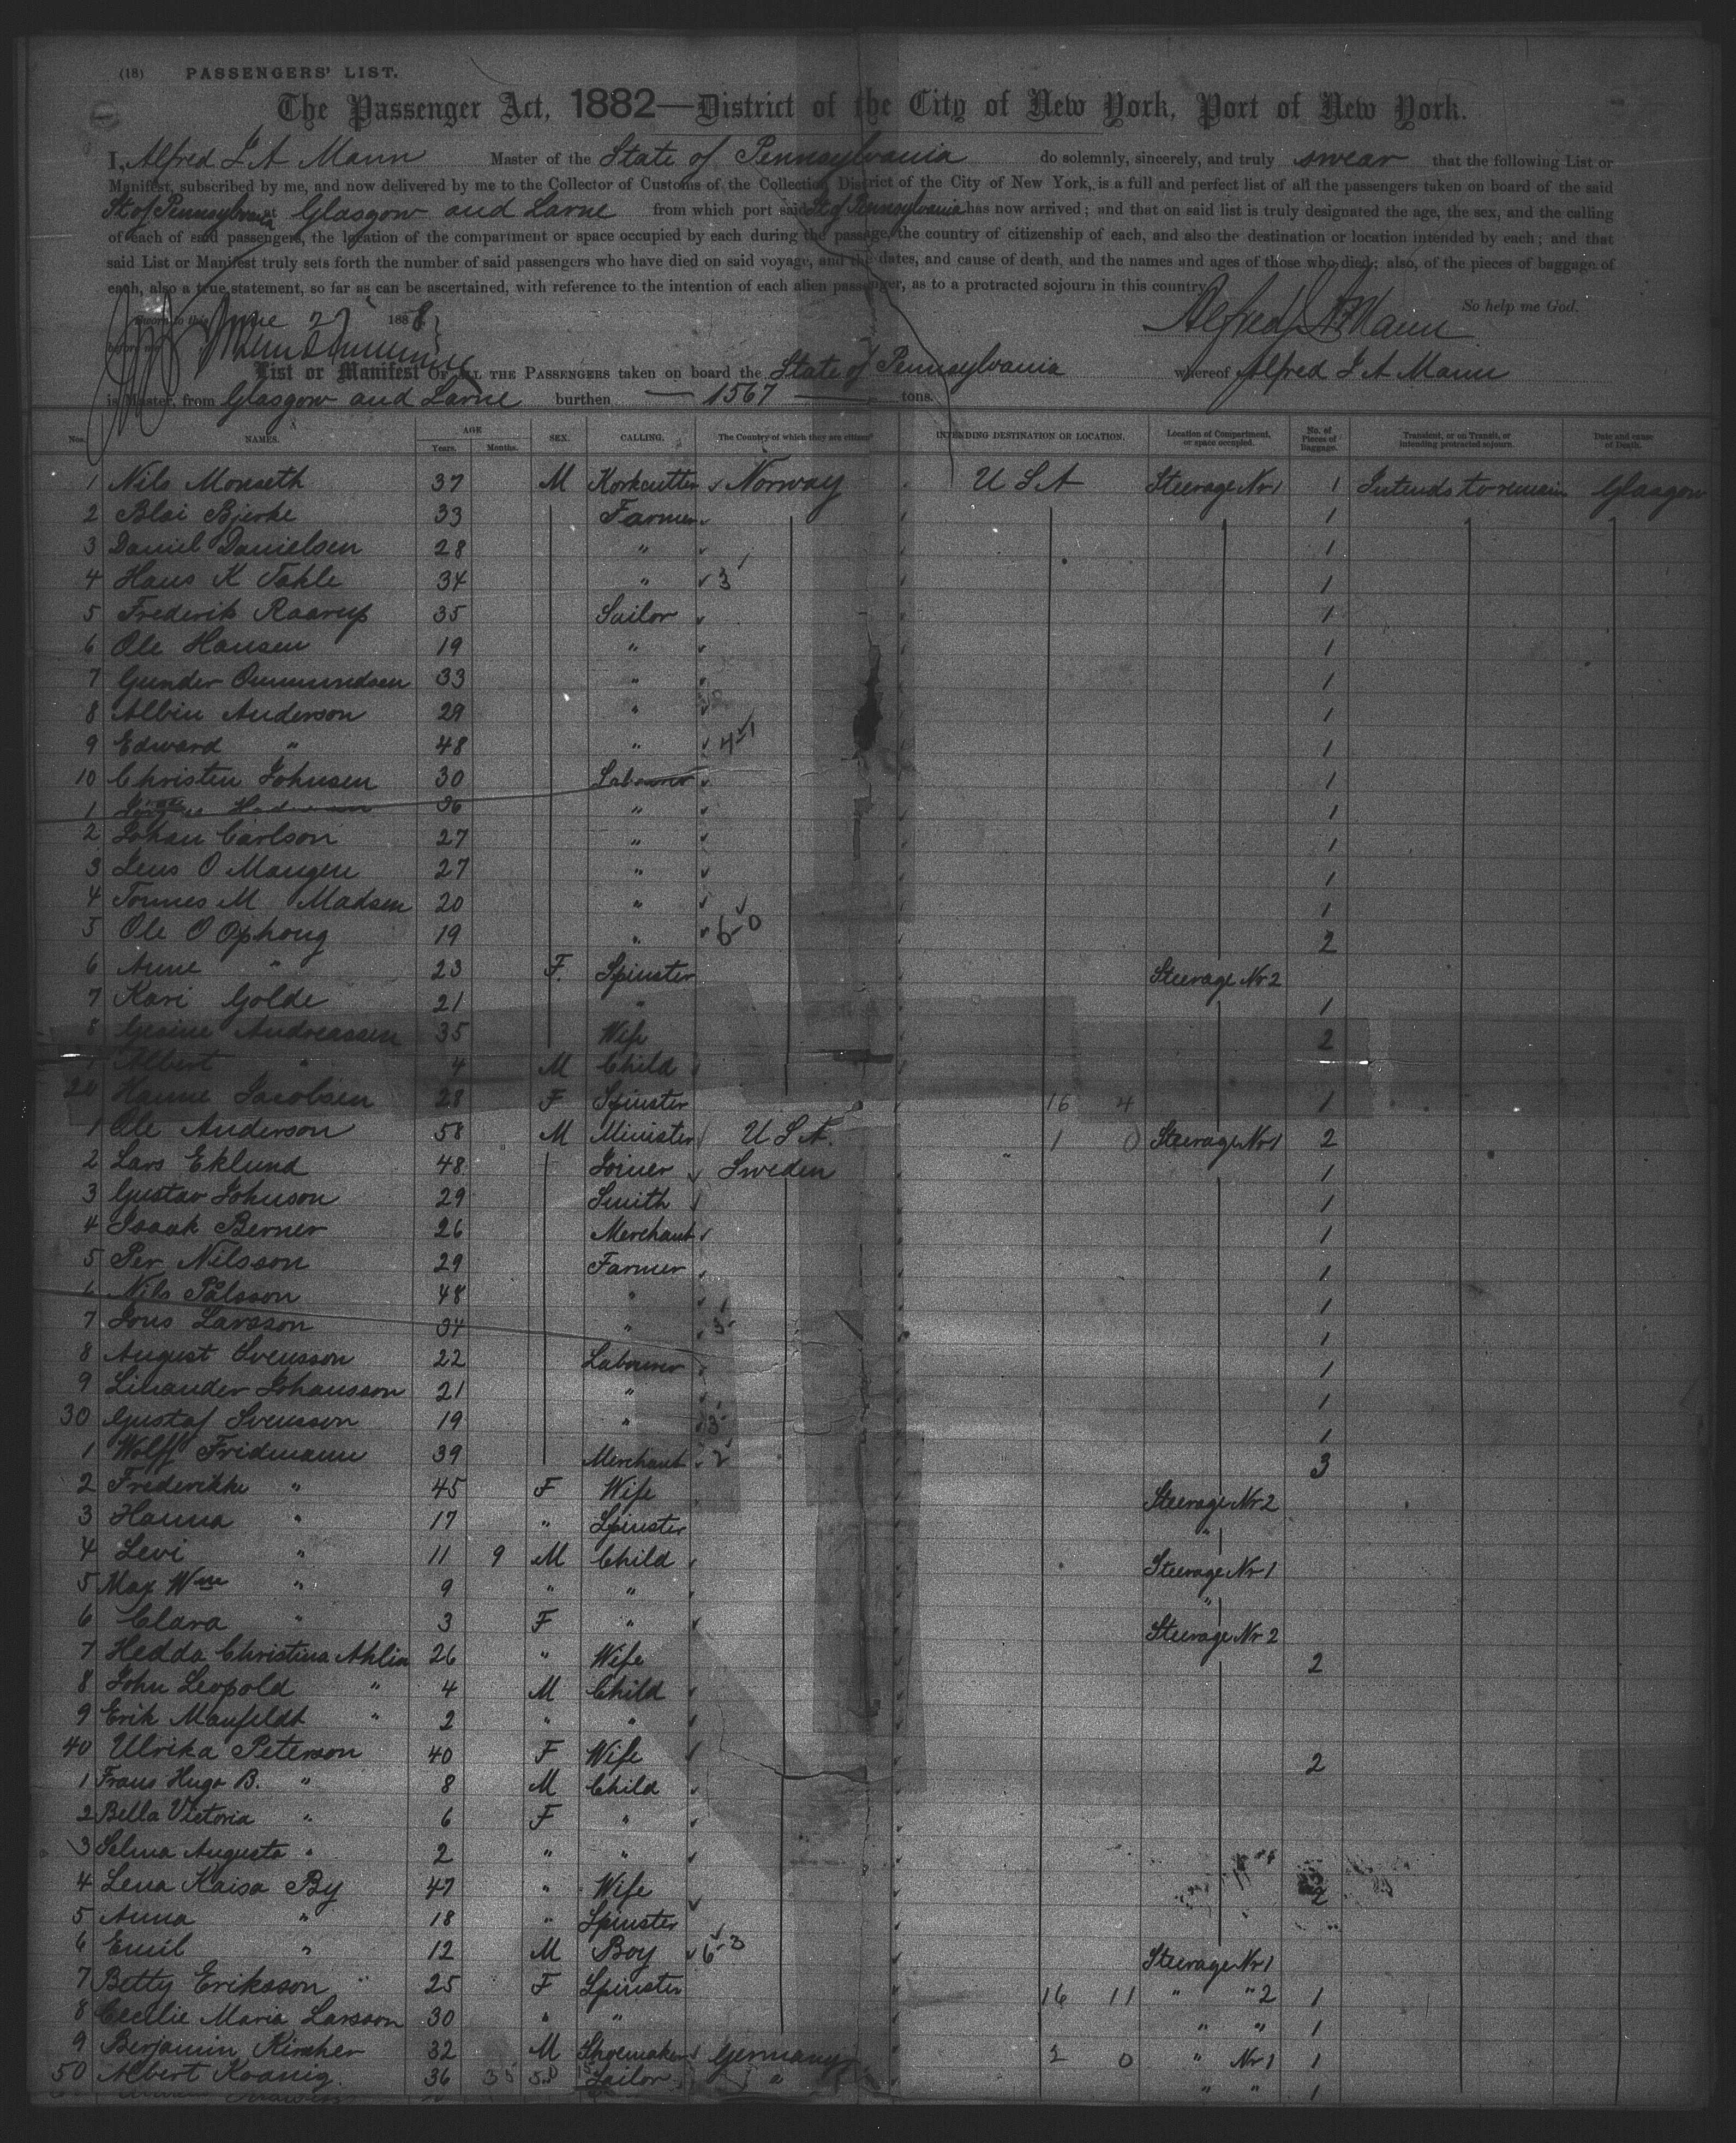 (18) PASSENGERS' LIST.
The Passenger Act, 1882—District of the City of New York, Port of New York.
I, Alfred J A Mann Master of the State of Pennsylvania do solemnly, sincerely, and truly swear that the following List or
Manifest, subscribed by me, and now delivered by me to the Collector of Customs of the Collection District of the City of New York, is a full and perfect list of all the passengers taken on board of the said
St of Pennsylvania at Glasgow and Larne from which port said St of Pennsylvania has now arrived; and that on said list is truly designated the age, the sex, and the calling
of each of said passengers, the location of the compartment or space occupied by each during the passage, the country of citizenship of each, and also the destination or location intended by each; and that
said List or Manifest truly sets forth the number of said passengers who have died on said voyage, and the dates, and cause of death, and the names and ages of those who died; also, of the pieces of baggage of
each, also a true statement, so far as can be ascertained, with reference to the intention of each alien passenger, as to a protracted sojourn in this country
So help me God.
Sworn to this June 188
before me
Alfred J A Mann
List or Manifest OF ALL THE PASSENGERS taken on board the State of Pennsylvania whereof Alfred J A Mann
is Master, from Glasgow and Larne burthen — 1567 — tons.
Nos. NAMES. AGE Years. Months. SEX. CALLING. The Country of which they are citizens INTENDING DESTINATION OR LOCATION. Location of Compartment, or space occupied. No. of Pieces of Baggage. Transient, or on Transit, or intending protracted sojourn. Date and cause of Death.
1 Nils Monseth 37 M Korkcutter Norway U S A Steerage Nr 1 1 Intends to remain Glasgow
2 Bloi Bjerke 33 Farmer 1
3 Daniel Danielsen 28 " 1
4 Hans K Tohle 34 " 3 1
5 Frederik Raarup 35 Sailor 1
6 Ole Hansen 19 " 1
7 Gunder Ommundsen 33 " 1
8 Albin Anderson 29 " 1
9 Edward " 48 " 4-1 1
10 Christen Johnsen 30 Labourer 1
1 36 " 1
2 Johan Carlson 27 " 1
3 Jens O Mangen 27 " 1
4 Tonnes M Madsen 20 " 1
5 Ole O Ophoug 19 " 6-0 2
6 Anne " 23 F. Spinster Steerage Nr 2
7 Kari Golde 21 " 1
8 Gesine Andreassen 35 Wife 2
9 Albert " 4 M Child
20 Hanne Jacobsen 28 F Spinster 16 4 1
1 Ole Anderson 58 M Minister U S A. 1 0 Steerage Nr 1 2
2 Lars Eklund 48 Joiner Sweden 1
3 Gustav Johnson 29 Smith 1
4 Isaak Berner 26 Merchant 1
5 Per Nilsson 29 Farmer 1
6 Nils Pålsson 48 " 1
7 Jons Larsson 34 " 3 1
8 August Svensson 22 Labourer 1
9 Linander Johansson 21 " 1
30 Gustaf Svensson 19 " 3 1
1 Wolff Fridmann 39 Merchant 2 3
2 Frederikke " 45 F Wife Steerage Nr 2
3 Hanna " 17 " Spinster "
4 Levi " 11 9 M Child Steerage Nr 1
5 Max Wm " 9 " " "
6 Clara " 3 F " Steerage Nr 2
7 Hedda Christina Ahlin 26 " Wife 2
8 John Leopold " 4 M Child
9 Erik Manfeldt " 2 " "
40 Ulrika Peterson 40 F Wife 2
1 Frans Hugo B. " 8 M Child
2 Bella Victoria " 6 F "
3 Selma Augusta " 2 " "
4 Lena Kaisa By 47 " Wife 2
5 Anna " 18 " Spinster
6 Emil " 12 M Boy 6-3 Steerage Nr 1
7 Betty Eriksson 25 F Spinster 16 11 " " 2 1
8 Cecilie Maria Larsson 30 " " " " 1
9 Benjamin Kircher 32 M Shoemaker Germany 2 0 " Nr 1 1
50 Albert Koenig. 36 Sailor " " " 1